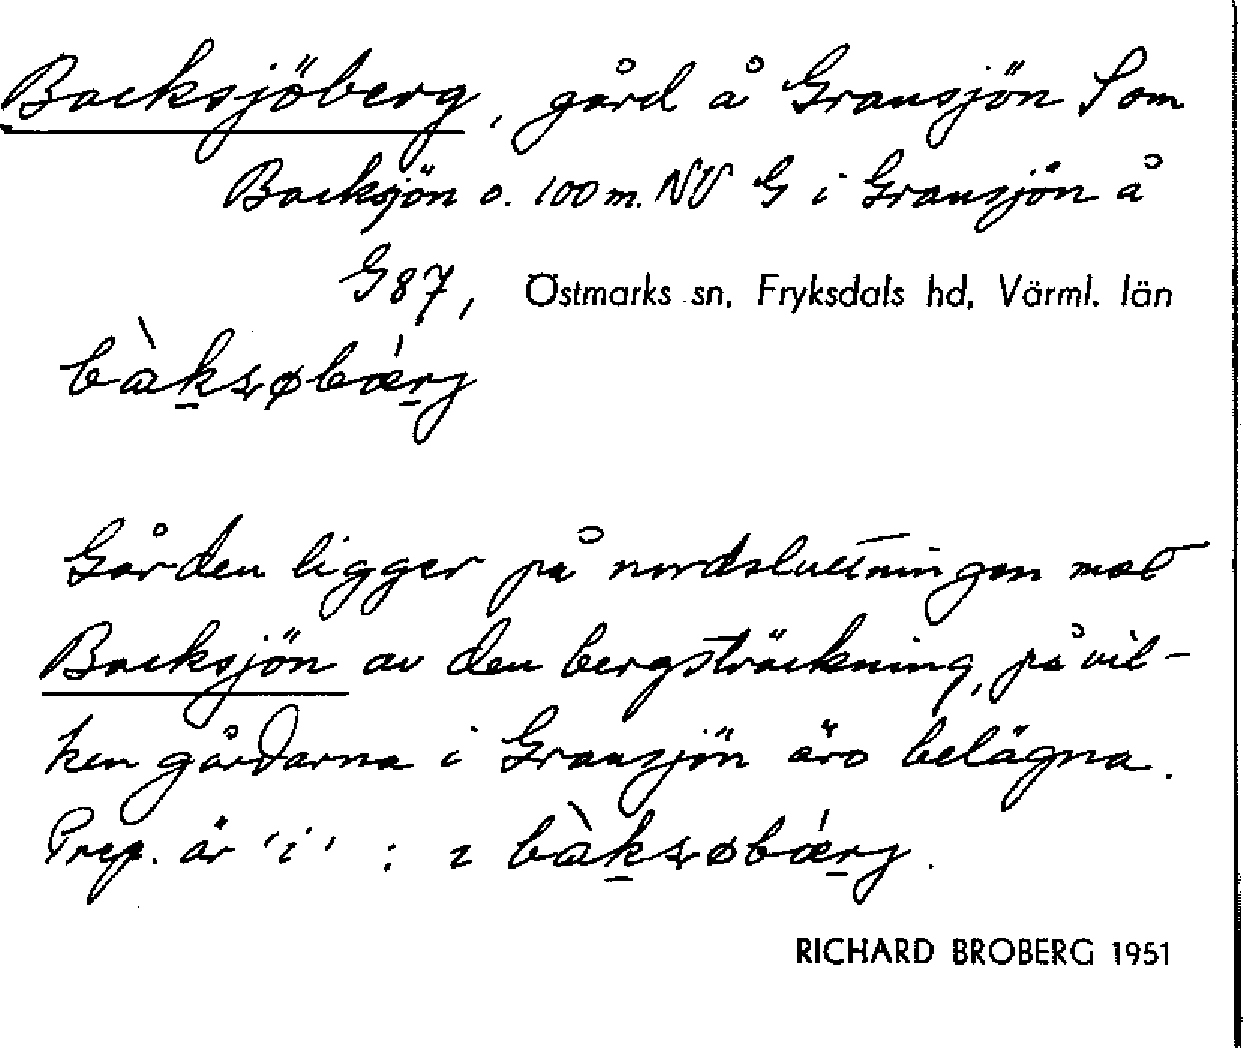 Backsjöberg, gård å Gransjön S om
Backsjön o. 100 m. NV G i Gransjön å
G87, Östmarks sn, Fryksdals hd, Värml. län
bàksøbǽrj
Gården ligger på nordsluttningen mot
Backsjön av den bergsträckning, på vil-
ken gårdarna i Gransjön äro belägna.
Prep. är 'i' : ɩ bàksøbǽrj.
RICHARD BROBERG 1951